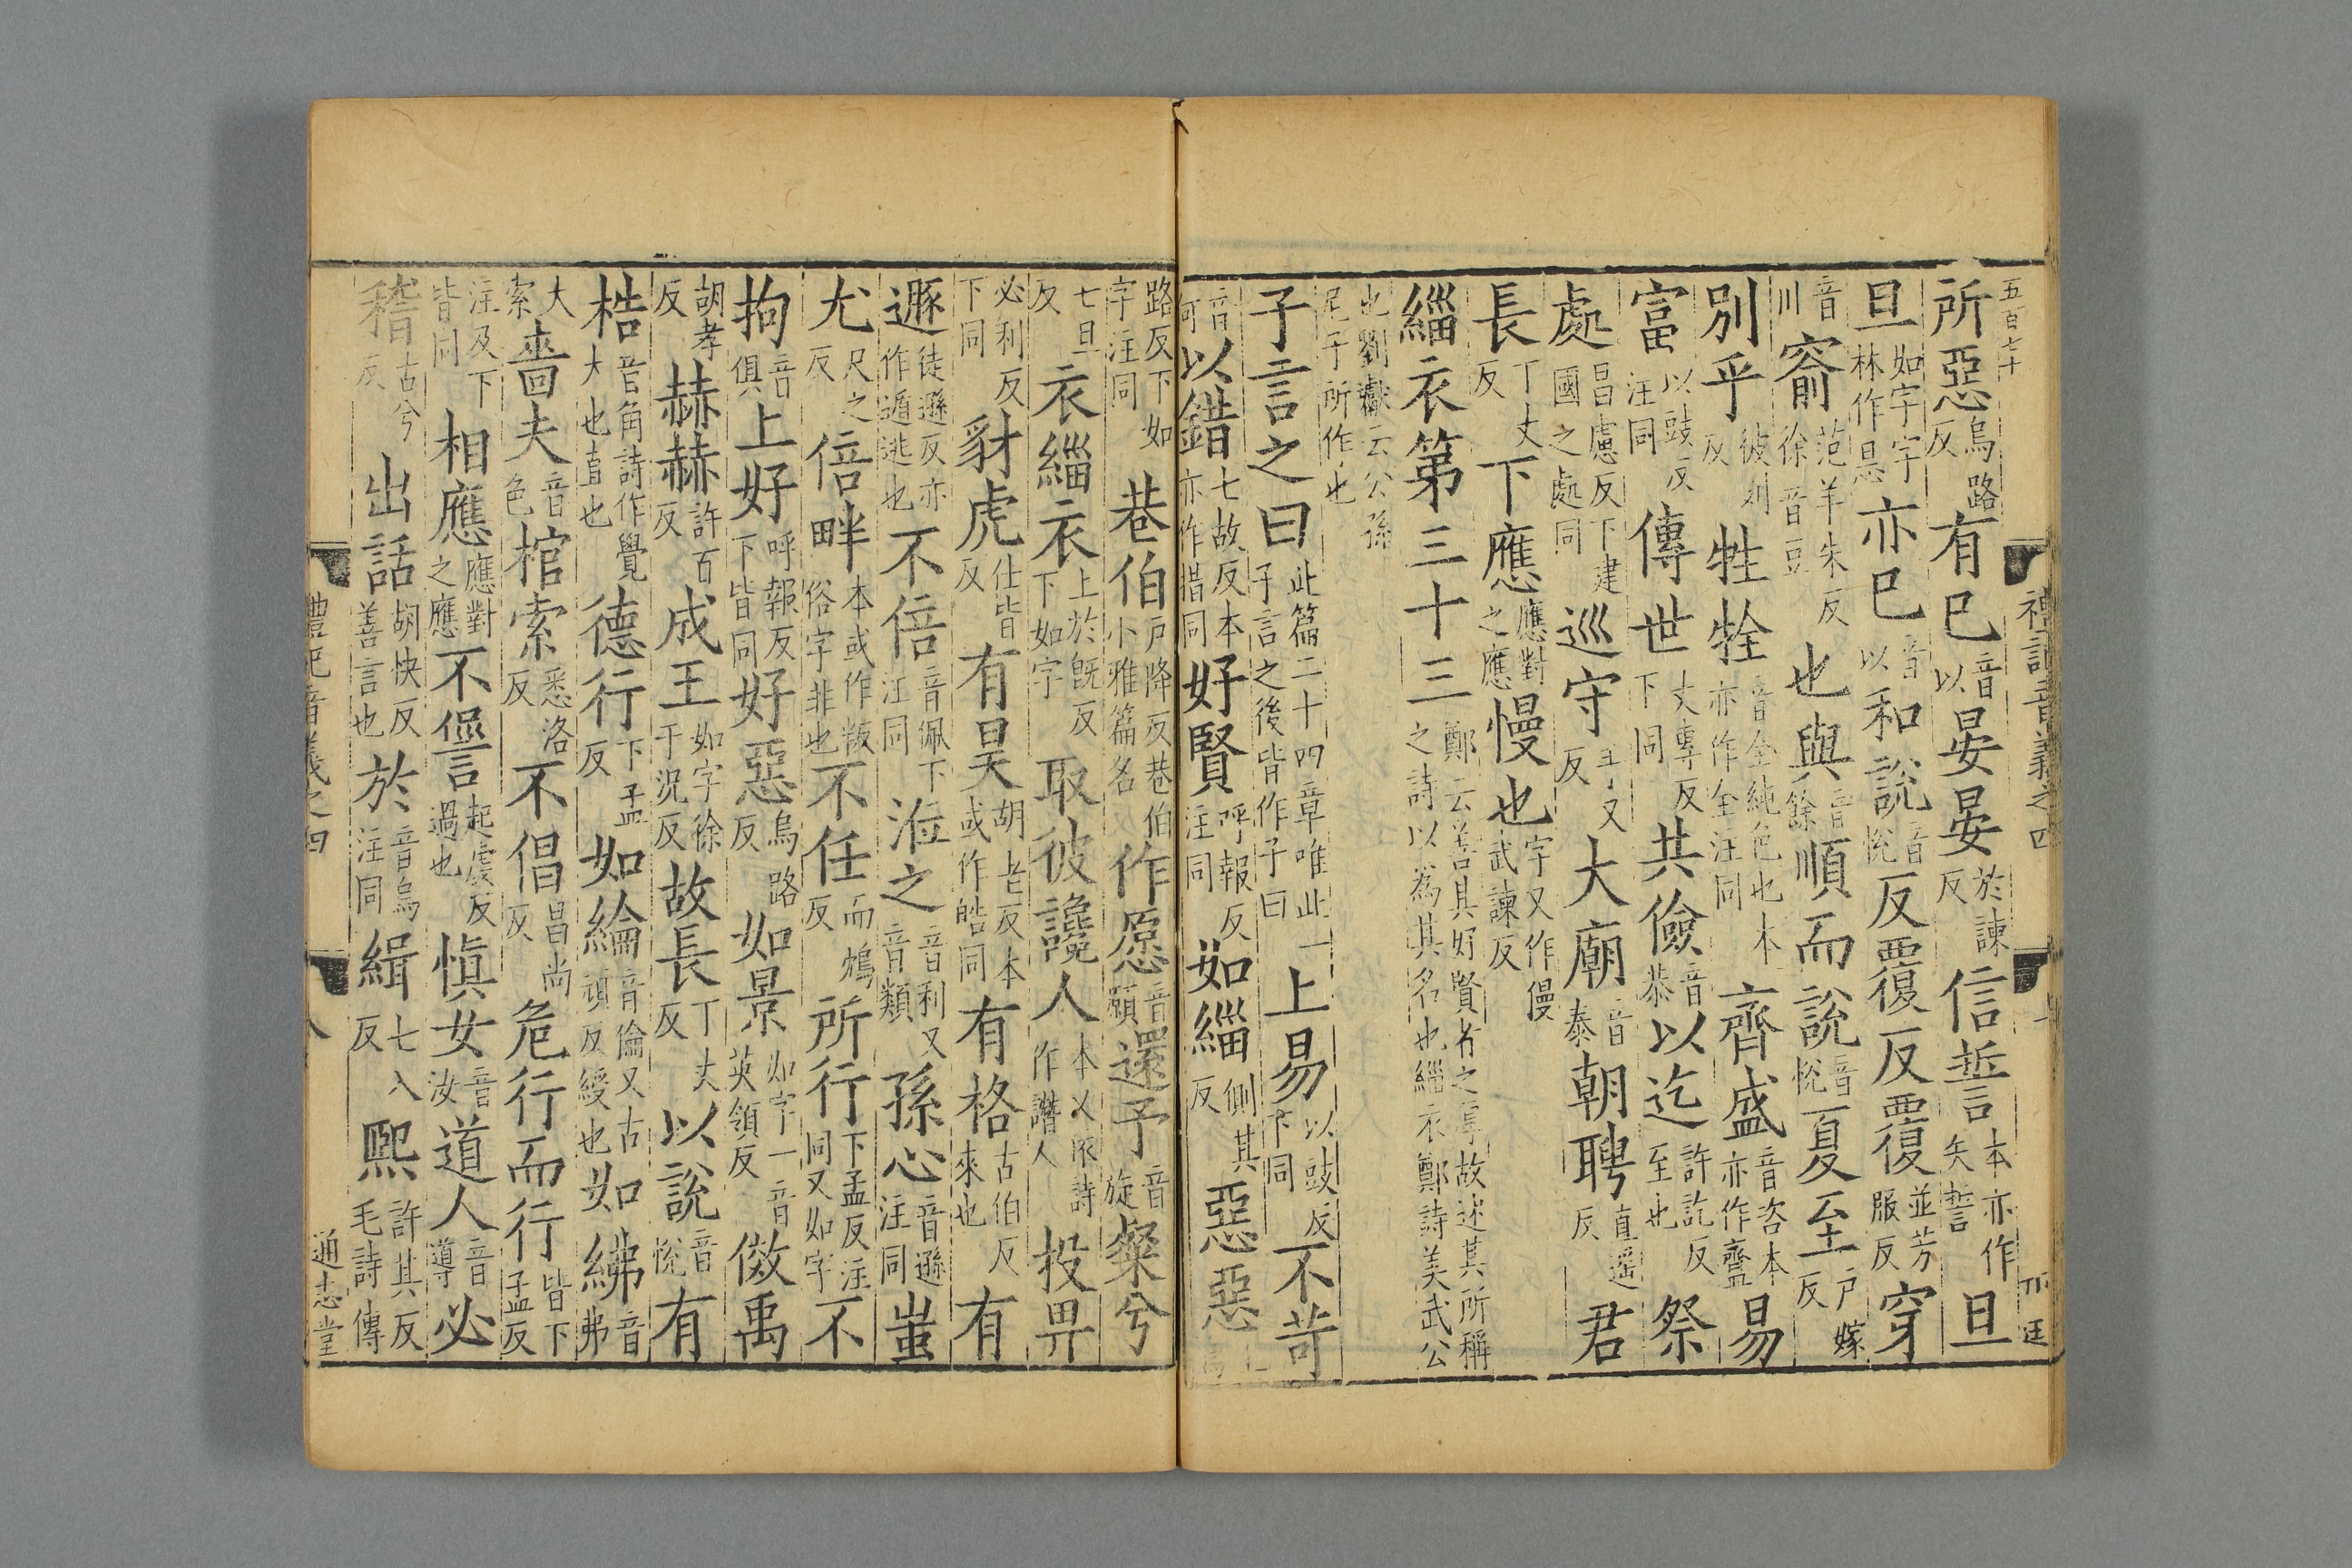 五百七十
禮記音義之四
所惡烏路反有巳音以晏晏於諫反信誓本亦作矢誓旦
旦如字字林作㫜亦巳音以和說音悅反覆反覆並芳服反穿
音川窬范羊朱反徐音豆也與音餘順而說音悅夏至戶嫁反
別乎彼列反牲牷音全純色也本亦作全注同齊盛音咨本亦作齍易
富以豉反注同傳世丈專反下同共儉音恭以迄許訖反至也祭
處昌慮反下建國之處同巡守手又反大廟音泰朝聘直遥反君
長丁丈反下應應對之應慢也字又作僈武諫反
緇衣第三十三鄭云善其好賢者之厚故述其所稱之詩以為其名也緇衣鄭詩美武公
也劉瓛云公孫尼子所作也
子言之曰此篇二十四章唯此一子言之後皆作子曰上易以豉反下同不苛
音何以錯七故反本亦作措同好賢呼報反注同如緇側其反惡惡上烏
路反下如字注同巷伯戶降反巷伯小雅篇名作愿音願還予音旋粲兮
七旦反衣緇衣上於旣反下如字取彼讒人本又依詩作譖人投畀
必利反下同豺虎仕皆反有昊胡老反本或作皓同有格古伯反來也有
遯徒遜反亦作遁逃也不倍音佩下注同涖之音利又音類孫心音遜注同蚩
尤尺之反倍畔本或作叛俗字非也不任而鴆反所行下孟反注同又如字不
拘音俱上好呼報反下皆同好惡烏路反如景如字一音英領反傚禹
胡孝反赫赫許百反成王如字徐于況反故長丁丈反以說音悅有
梏音角詩作覺大也直也德行下孟反如綸音倫又古頑反綬也如綍音弗
大索嗇夫音色棺索悉洛反不倡昌尚反危行而行皆下孟反
注及下皆同相應應對之應不諐起虔反過也愼女音汝道人音導必
稽古兮反出話胡快反善言也於音烏注同緝七入反熙許其反毛詩傳
禮記音義之四
八
通志堂